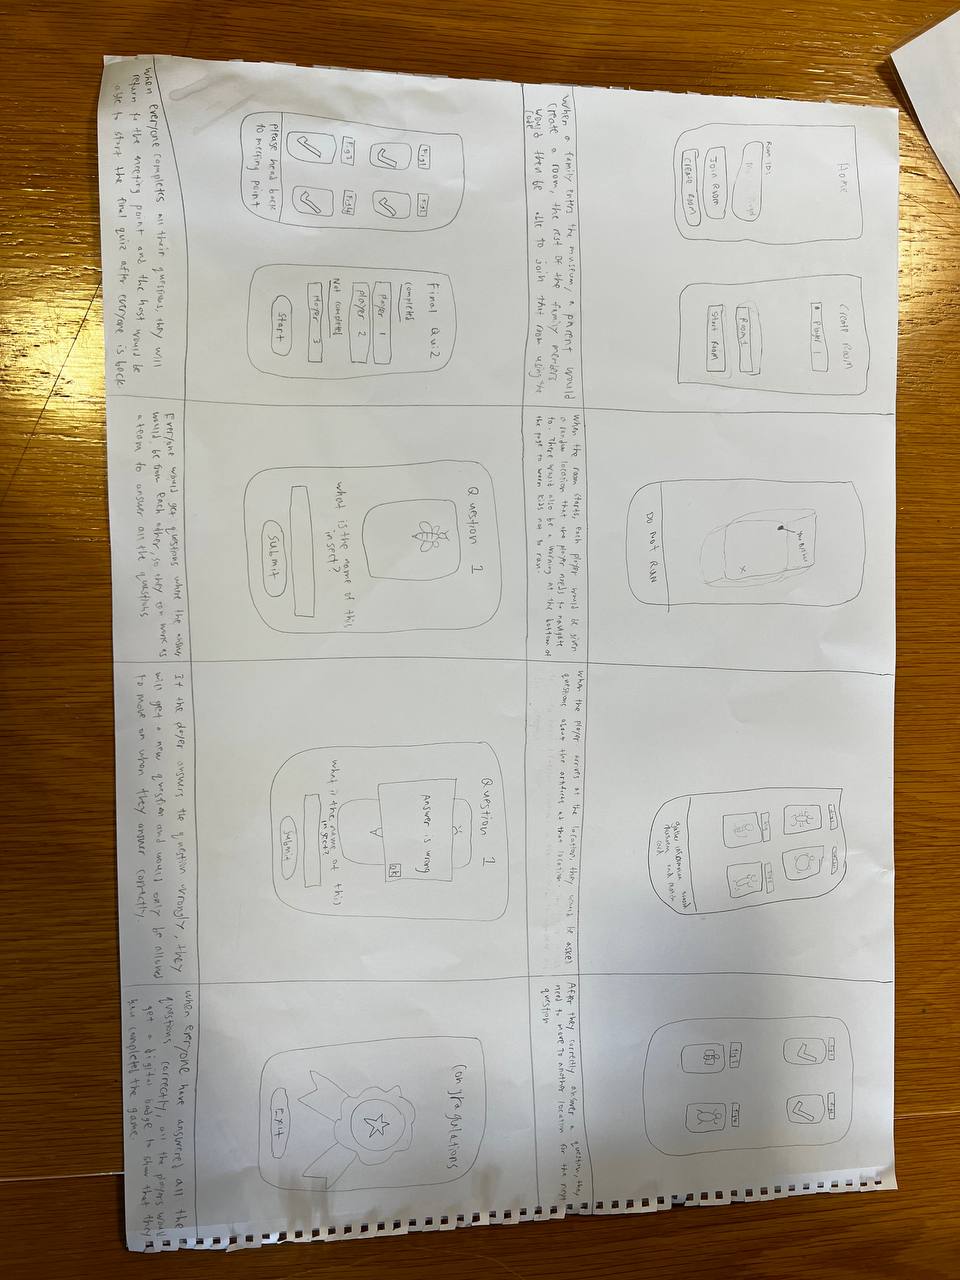 Home
Room ID:
Join Room
Create Room
Create Room
Player 1
Room 1
Start Room
When a family enters the museum, a parent would
create a room, the rest of the family members
would then be able to join that room using the
code
You are here
x
DO NOT RUN
When the room starts, each player would be given
a random location that the player needs to navigate
to. There would also be a warning at the bottom of
the page to warn kids not to run.
Fig1
Fig
Fig
gather information around
museum and match
card
When the player arrives at the location, they would be asked
questions about the artifacts at that location
Fig1
Fig2
Fig3
Fig4
After they correctly answer a question, they
need to move to another location for the next
question
Fig1
Fig2
Fig3
Fig4
Please head back
to meeting point
Final Quiz
Completed
Player 1
Player 2
Not completed
Player 3
Start
When everyone completes all their questions, they will
return to the meeting point and the host would be
able to start the final quiz after everyone is back.
Question 1
What is the name of this
insect?
Submit
Everyone would get questions where the answer
would be from each other, so they can work as
a team to answer all the questions
Question 1
Answer is wrong
ok
What is the name of this
insect?
Submit
If the player answers the question wrongly, they
will get a new question and would only be allowed
to move on when they answer correctly.
Congragulations
Exit
When everyone have answered all the
questions correctly, all the players would
get a digital badge to show that they
have completed the game.